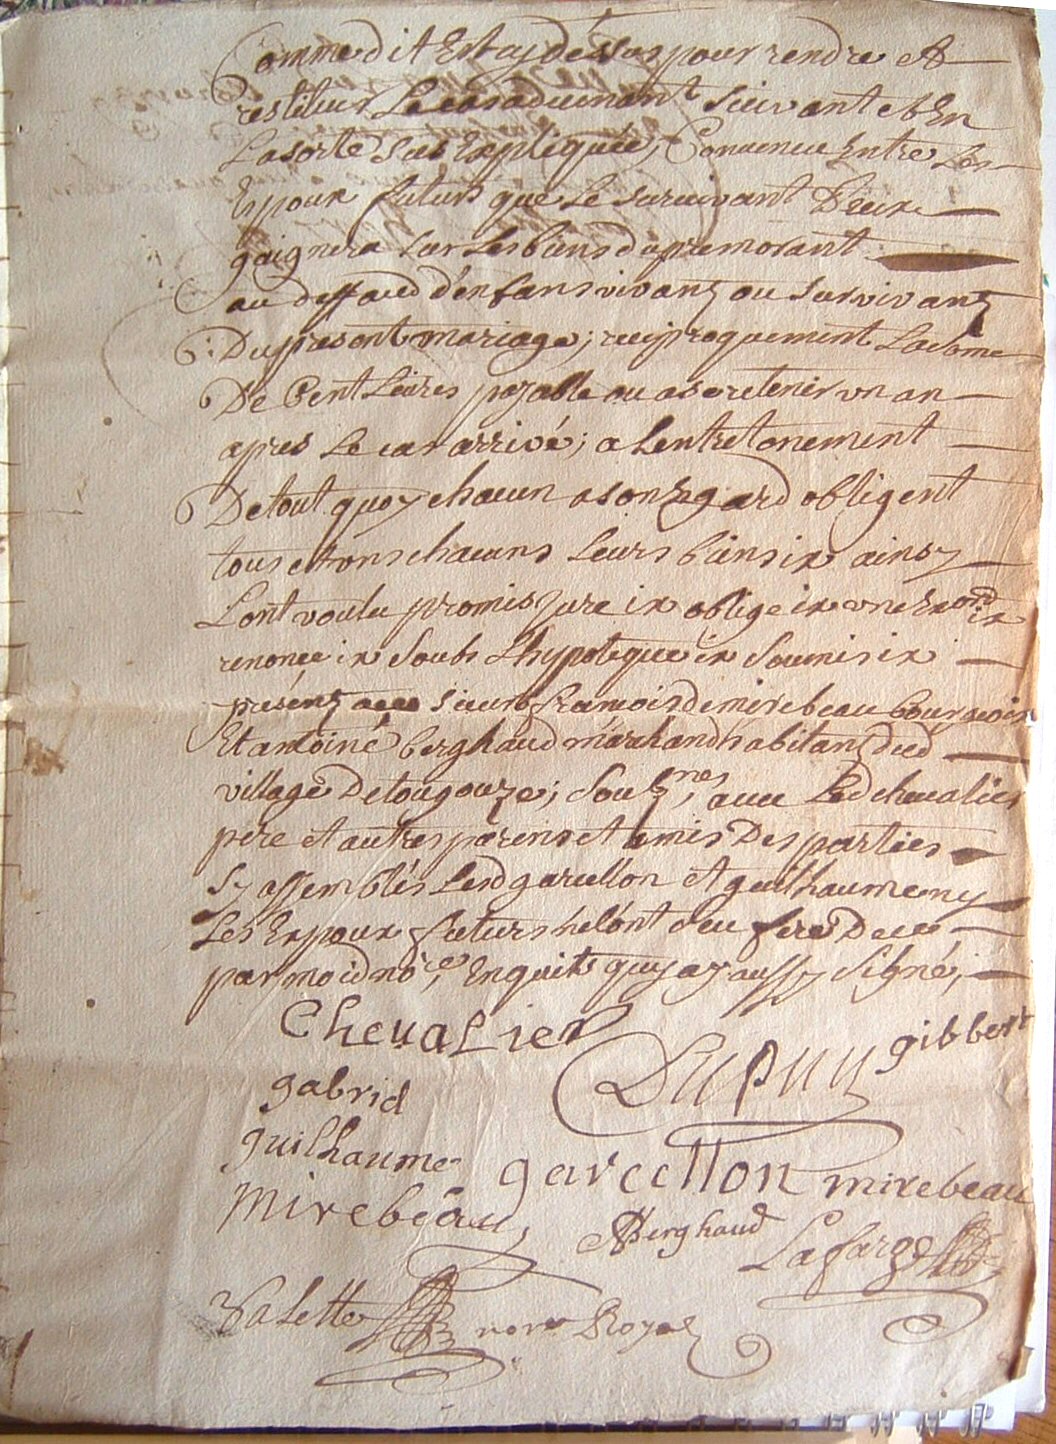 Comme dit Est cy dessus pour rendre et
restituer Le cas aduenant suivant et En
La sorte sus Expliquée, Convenu Entre Les
Epoux futurs que Le survivant D'eux
gaignera sur Les biens du premorant
au deffaud d'enfans vivants ou survivants
Du present mariage; reciproquement La some
De Cent Livres payable ou a se retenir un an
apres Le cas arrivé; a Lentretenement
De tout quoy chacun a son Egard obligent
tous et ons chacuns Leurs biens ix ainsy
Lont voulu promis juré ix obligé ix une ix
renoncé ix soubs L'hypoteque ix soumis ix
présents sieurs françois de mirebeau bourgeois
Et antoine berghaud marchand habitans dud
village De tougouze; Souz.nes, avec Led chevalier
pere et autres parens et amis Des parties
sy assemblés Lesd garcellon et guilhaume ny
Les Expoux futurs ne l'ont sceu fere De ce
par moid no.re, Enquits quy ay aussy signé;
Chevalier
gibbert
Dupuy
gabriel
guilhaume
garcellon
mirebeau
mirebeau
ABerghaud
Lafarge
Valette no.re Royal